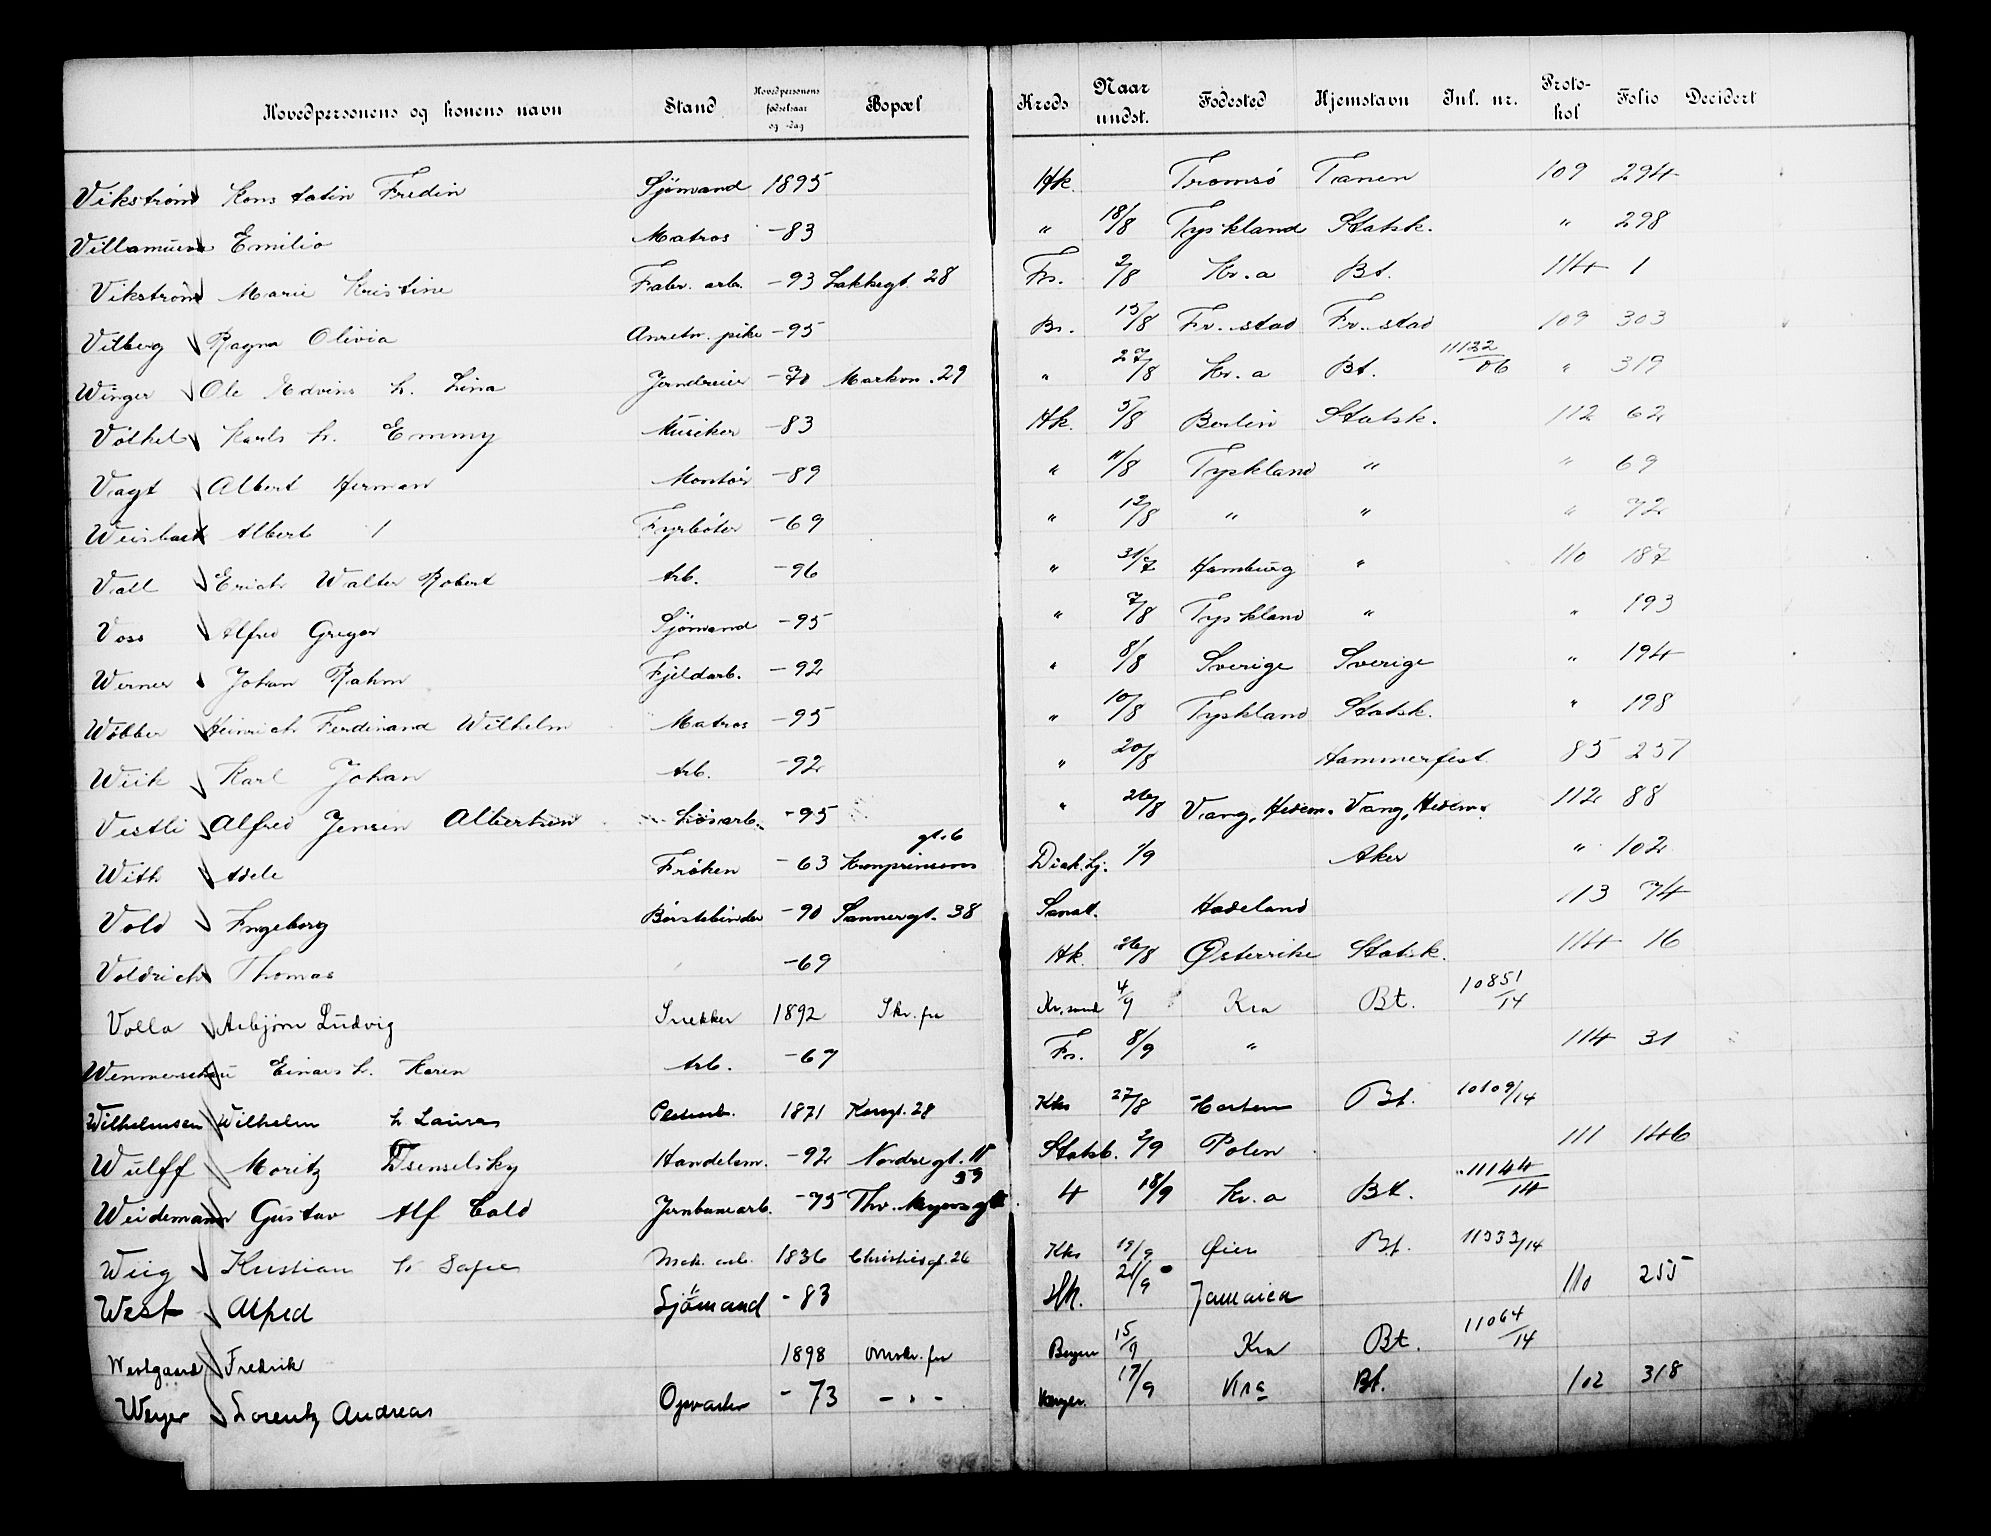 Hovedpersonens og konens navn Stand Hovedpersonens fødselsaar og -dag Bopæl Kreds Naar undst. Fødested Hjemstavn Inl. nr. Proto-kol Folio Decidert
Vikstrøm Konstatin Fredin Sjømand 1895 Hk. Tromsø Tanen 109 294
Emilio Matros -83 " 18/8 Tyskland Statsk. " 298
Vikstrøm Marie Kristine Fabr. arb. -93 Lakkegt. 28 Fr. 2/8 Kr.a Bt. 114 1
Vilberg Ragna Olivia Anretn. pike -95 Br. 15/8 Fr.stad Fr.stad 109 303
Winger Ole Edvins h. Lina Jerndreier -70 Markvn. 29 " 27/8 Kr.a Bt. 11132/06 " 319
Völkel Karls h. Emmy Musiker -83 Hk. 5/8 Berlin Statsk. 112 62
Vagt Albert Herman Montør -89 " 11/8 Tyskland " " 69
Albert Fyrbøter -69 " 12/8 " " " 72
Vall Erich Walter Robert Arb. -96 " 31/7 Hamburg " 110 187
Voss Alfred Gregor Sjømand -95 " 7/8 Tyskland " " 193
Werner Johan Rahm Fjeldarb. -92 " 8/8 Sverige Sverige " 194
Wöbber Heinrich Ferdinand Wilhelm Matros -95 " 10/8 Tyskland Statsk. " 198
Wiik Karl Johan Arb. -92 " 20/8 Hammerfest 85 257
Vestli Alfred Jensen Albertsen Løsarb. -95 " 26/8 Vang, Hedem. Vang, Hedem. 112 88
With Adele Frøken -63 Kronprinsens gt. 6 Diak.hj. 1/9 Aker " 102
Vold Ingeborg Børstebinder -90 Sannergt. 38 Sanat. Hadeland 113 74
Voldrich Thomas -69 Hk. 26/8 Østerrike Statsk. 114 16
Volla Asbjørn Ludvig Snekker 1892 Skr. fra Kr.sand 4/9 Kra Bt. 10851/14
Einars h. Karen Arb. -67 Fr. 8/9 " 114 31
Wilhelmsen Wilhelm h Laura 1871 Kongt. 28 Kks 27/8 Horten Bt. 10109/14
Wulff Moritz Handelsm. -92 Nordregt. Statsb. 2/9 Polen 111 146
Weidemann Gustav Alf Cold Jernbanearb. -75 Thv. Meyersgt 59 4 18/9 Kr.a Bt. 11144/14
Wiig Kristian h Sofie Mek. arb. 1836 Christiesgt. 26 Kks 19/9 Øier Bt. 11333/14
West Alfred Sjømand -83 Hk. 21/9 Jamaica 110 255
Westgaard Fredrik 1898 Omskr. fra Bergen 15/9 Kra Bt. 11064/14
Weyer Lorentz Andreas Opvarter -73 - " - 17/9 Kra Bt. 102 318